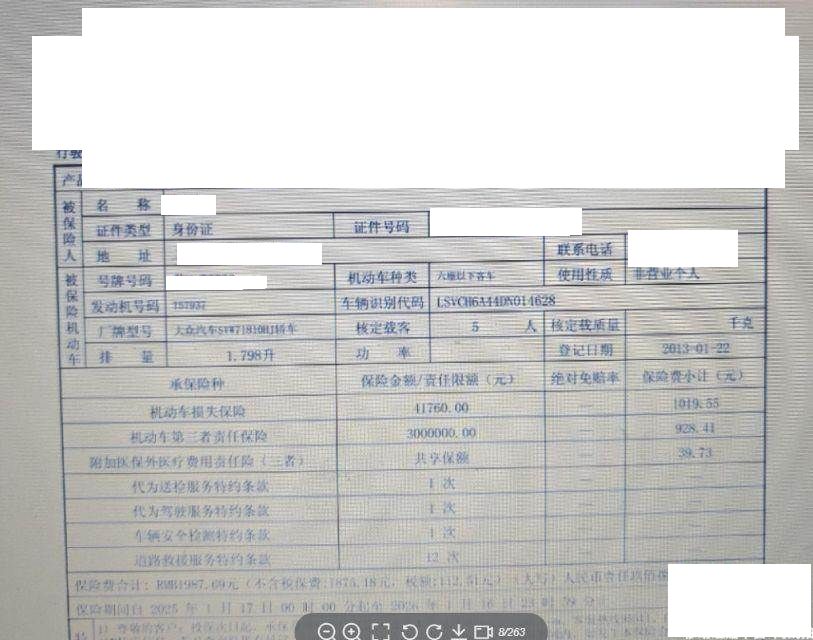 产
被保险人
名 称
证件类型 身份证 证件号码
地 址 联系电话
被保险机动车
号牌号码 机动车种类 六座以下客车 使用性质 非营业个人
发动机号码 157937 车辆识别代码 LSVCH6A44DN014628
厂牌型号 大众汽车SVW71810HJ轿车 核定载客 5 人 核定载质量 千克
排 量 1.798升 功 率 登记日期 2013-01-22
承保险种 保险金额/责任限额(元) 绝对免赔率 保险费小计(元)
机动车损失保险 41760.00 — 1019.55
机动车第三者责任保险 3000000.00 — 928.41
附加医保外医疗费用责任险(三者) 共享保额 39.73
代为送检服务特约条款 1 次 —
代为驾驶服务特约条款 1 次 —
车辆安全检测特约条款 1 次
道路救援服务特约条款 12 次 —
保险费合计:RMB1987.69元(不含税保费:1875.18元,税额:112.51元)(大写)人民币壹仟玖佰
保险期间自 2025 年 1 月 17 日 00 时 00 分起至 2026 年 1 月 16 日 23 时 59 分
特 1) 尊敬的客户:
8/263